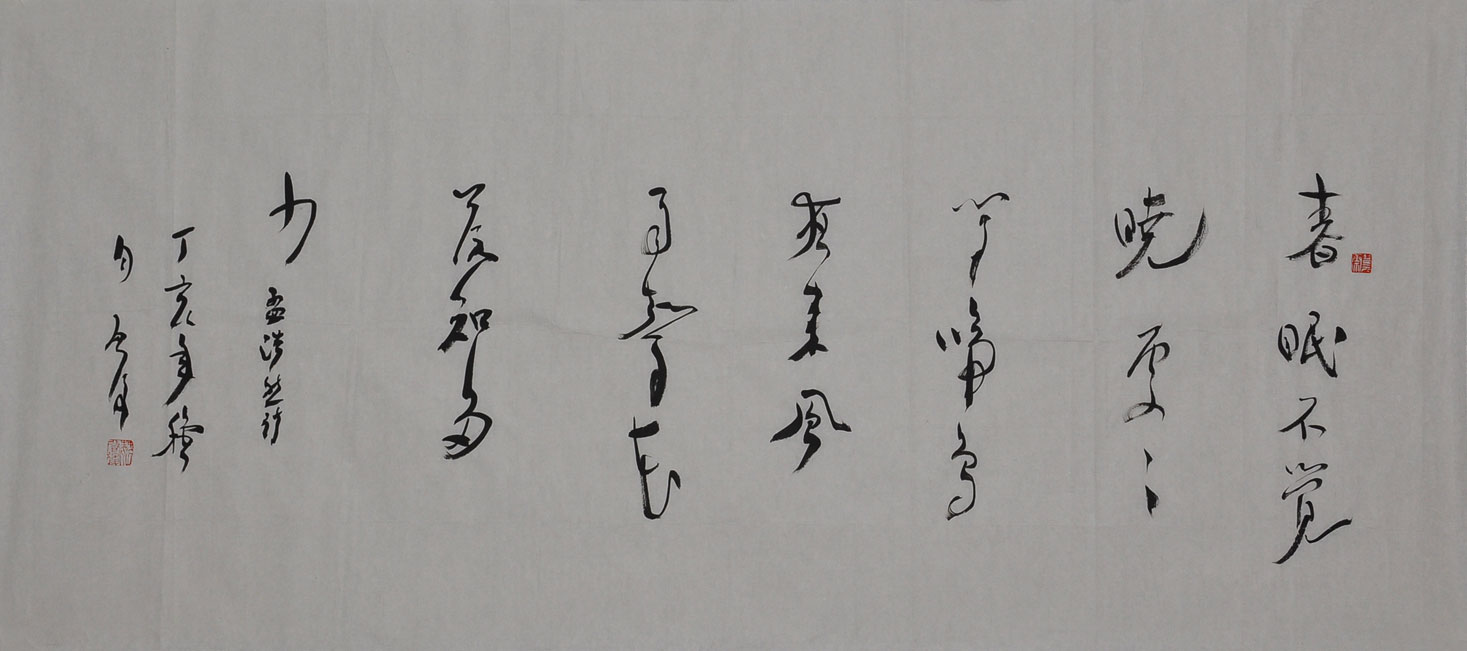 春眠不觉
晓处々
闻啼鸟
夜来风
雨声花
落知多
少
孟浩然诗
丁亥年
月